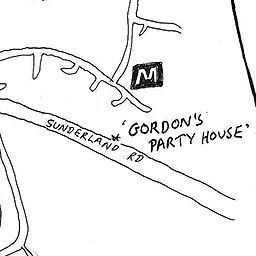 M
'GORDON'S
PARTY HOUSE'
SUNDERLAND RD